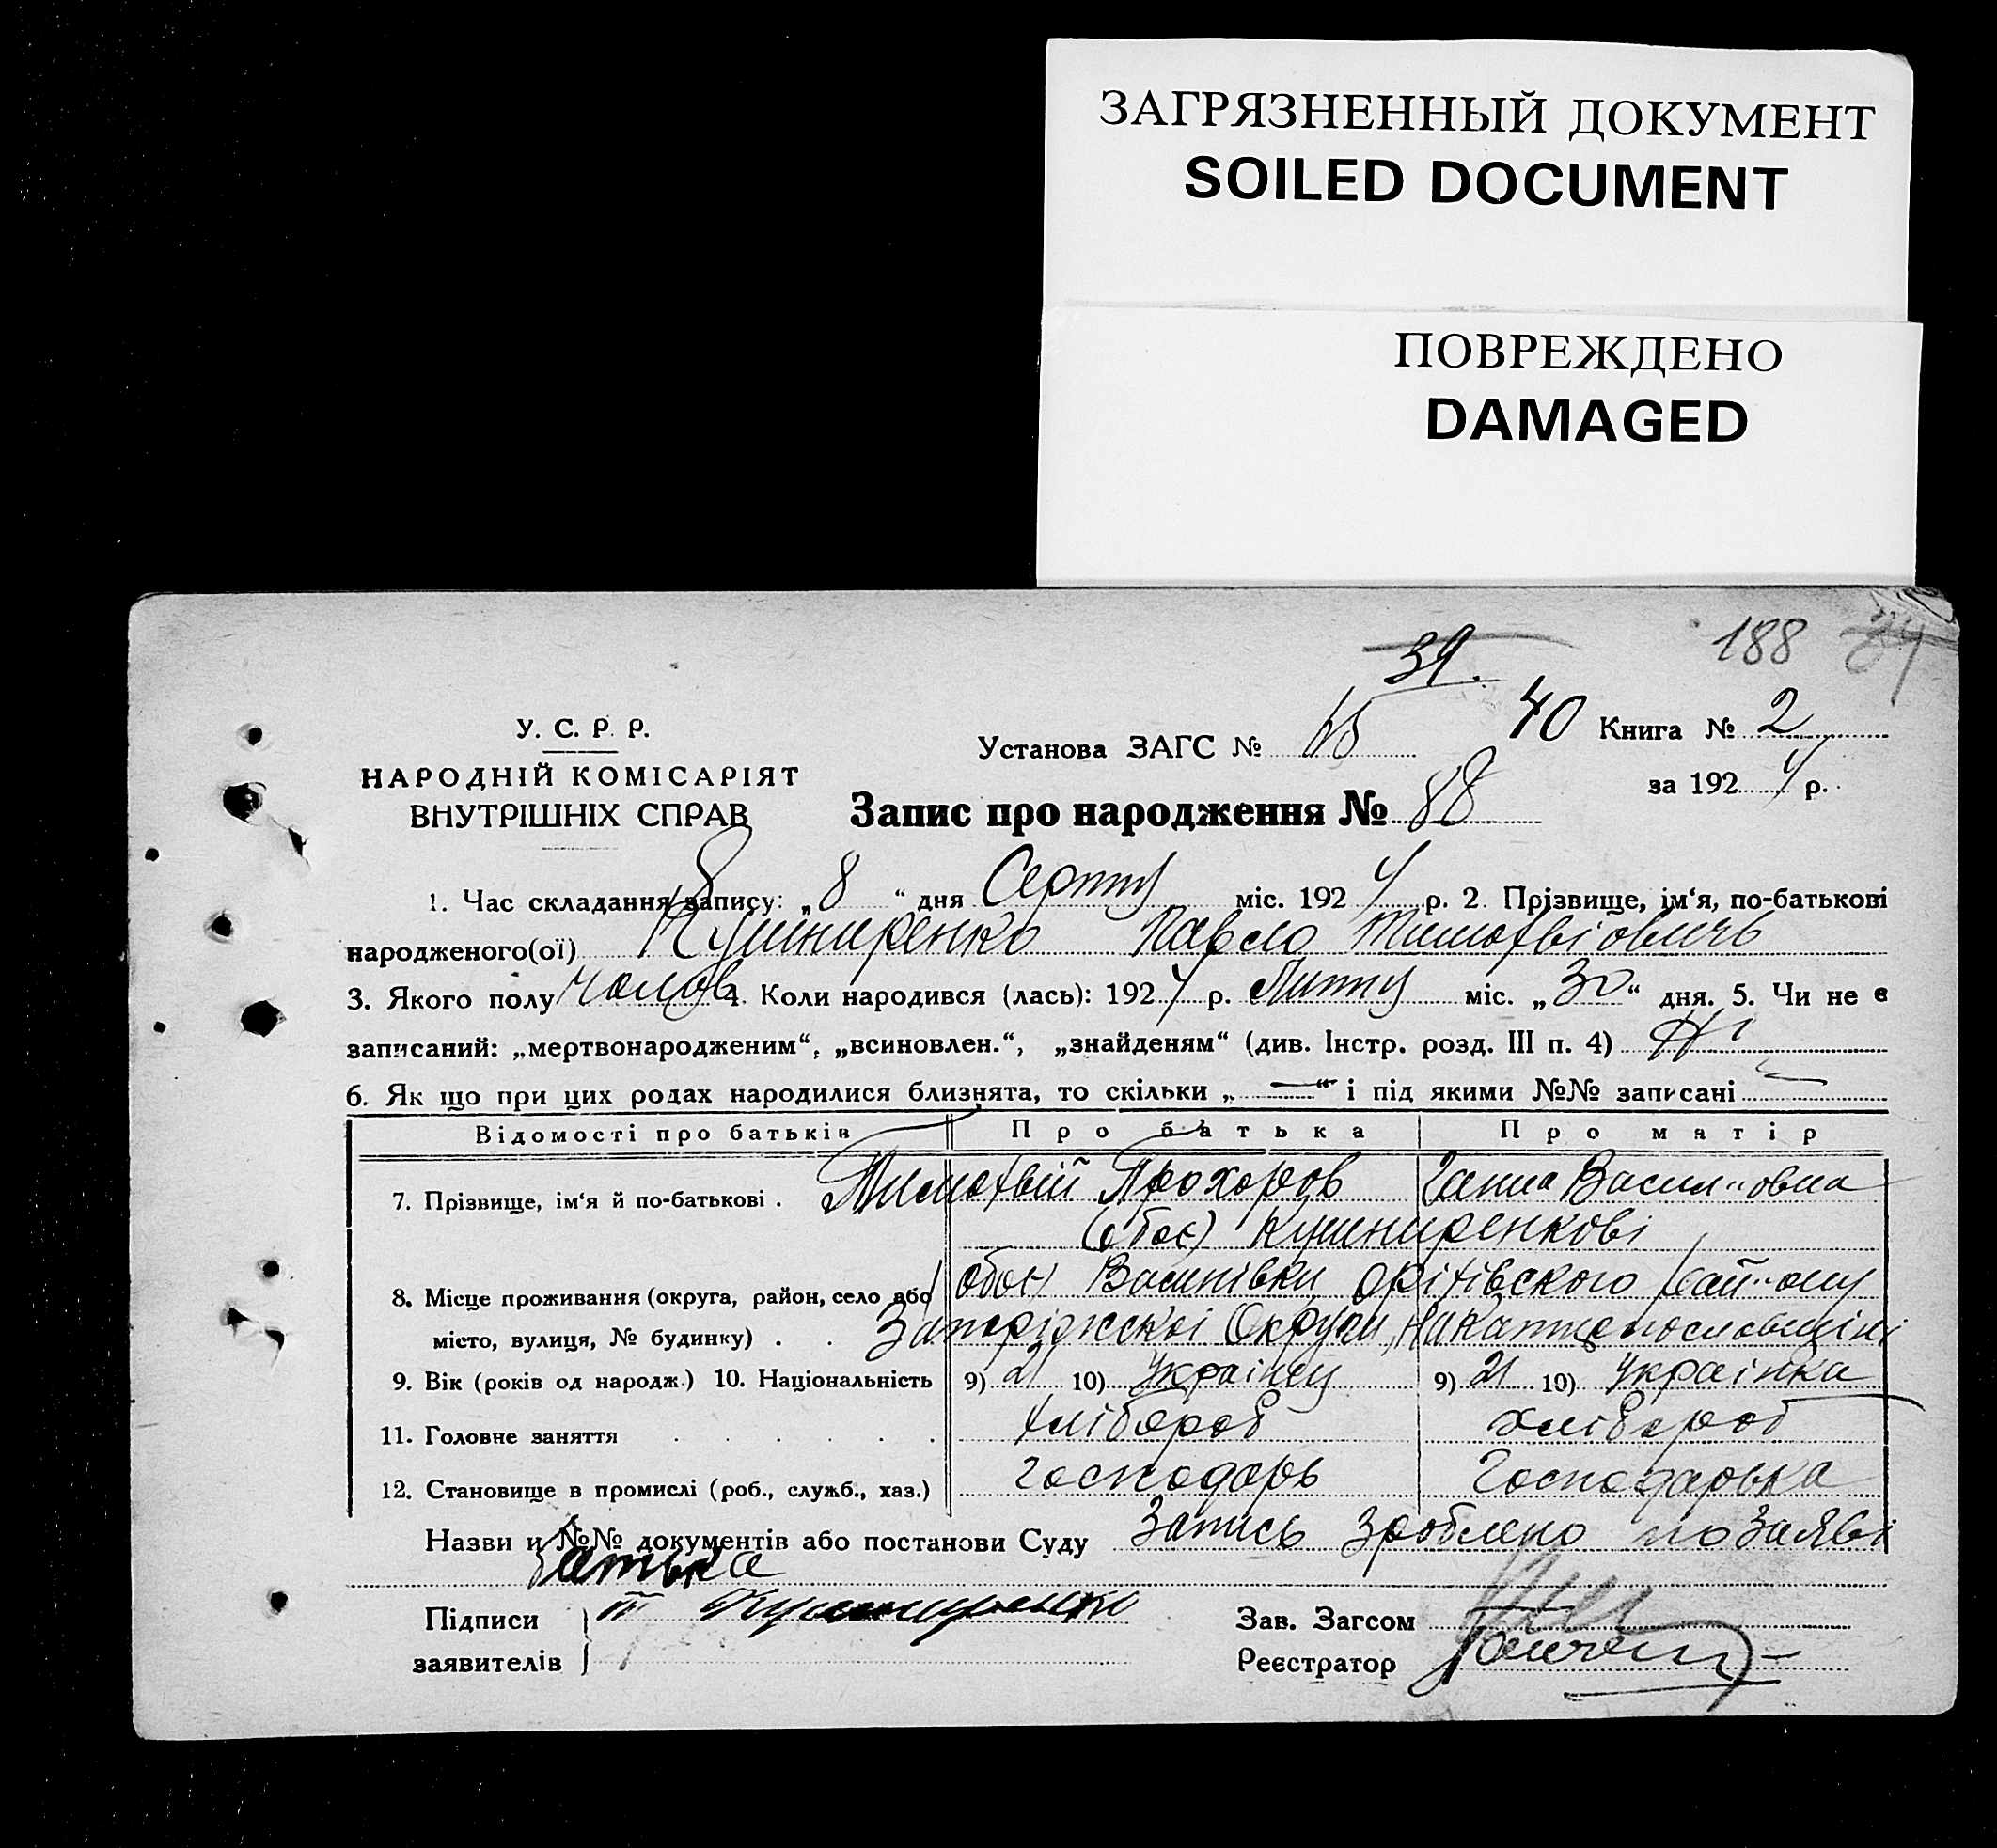 ЗАГРЯЗНЕННЫЙ ДОКУМЕНТ
SOILED DOCUMENT
ПОВРЕЖДЕНО
DAMAGED
188
39.
У. С. Р. Р.
НАРОДНІЙ КОМІСАРІЯТ
ВНУТРІШНІХ СПРАВ
Установа ЗАГС № 40 Книга № 2
за 1924 р.
Запис про народження № 88
1. Час складання запису: „8“ дня Серпня міс. 1924 р. 2. Прізвище, ім‘я, по-батькові
народженого(ої) Кушниренко Павло Тимофвіовичь
3. Якого полу чолов. 4. Коли народився (лась): 1924 р. Липня міс. „30“ дня. 5. Чи не є
записаний: „мертвонародженим“, „всиновлен.“, „знайденям“ (див. Інстр. розд. III п. 4) Ні
6. Як що при цих родах народилися близнята, то скільки „—“ і під якими №№ записані —
Відомості про батьків Про батька Про матір
7. Прізвище, ім‘я й по-батькові . Тимофвій Прохоров Ганна Васил‘‘овна
(обоє) Кушниренкові
8. Місце проживання (округа, район, село або обоє
місто, вулиця, № будинку) . . Запоріжскоі Округи
9. Вік (років од народж.) 10. Національність 9) 21 10) Украінец 9) 21 10) Украінка
11. Головне заняття . . . . . . хлібороб хлібороб
12. Становище в промислі (роб., служб., хаз.) Господарь Господарька
Назви и №№ документів або постанови Суду Запись Зроблено по Заяві
батька
Підписи Т Кушниренко Зав. Загсом
заявителів Реєстратор